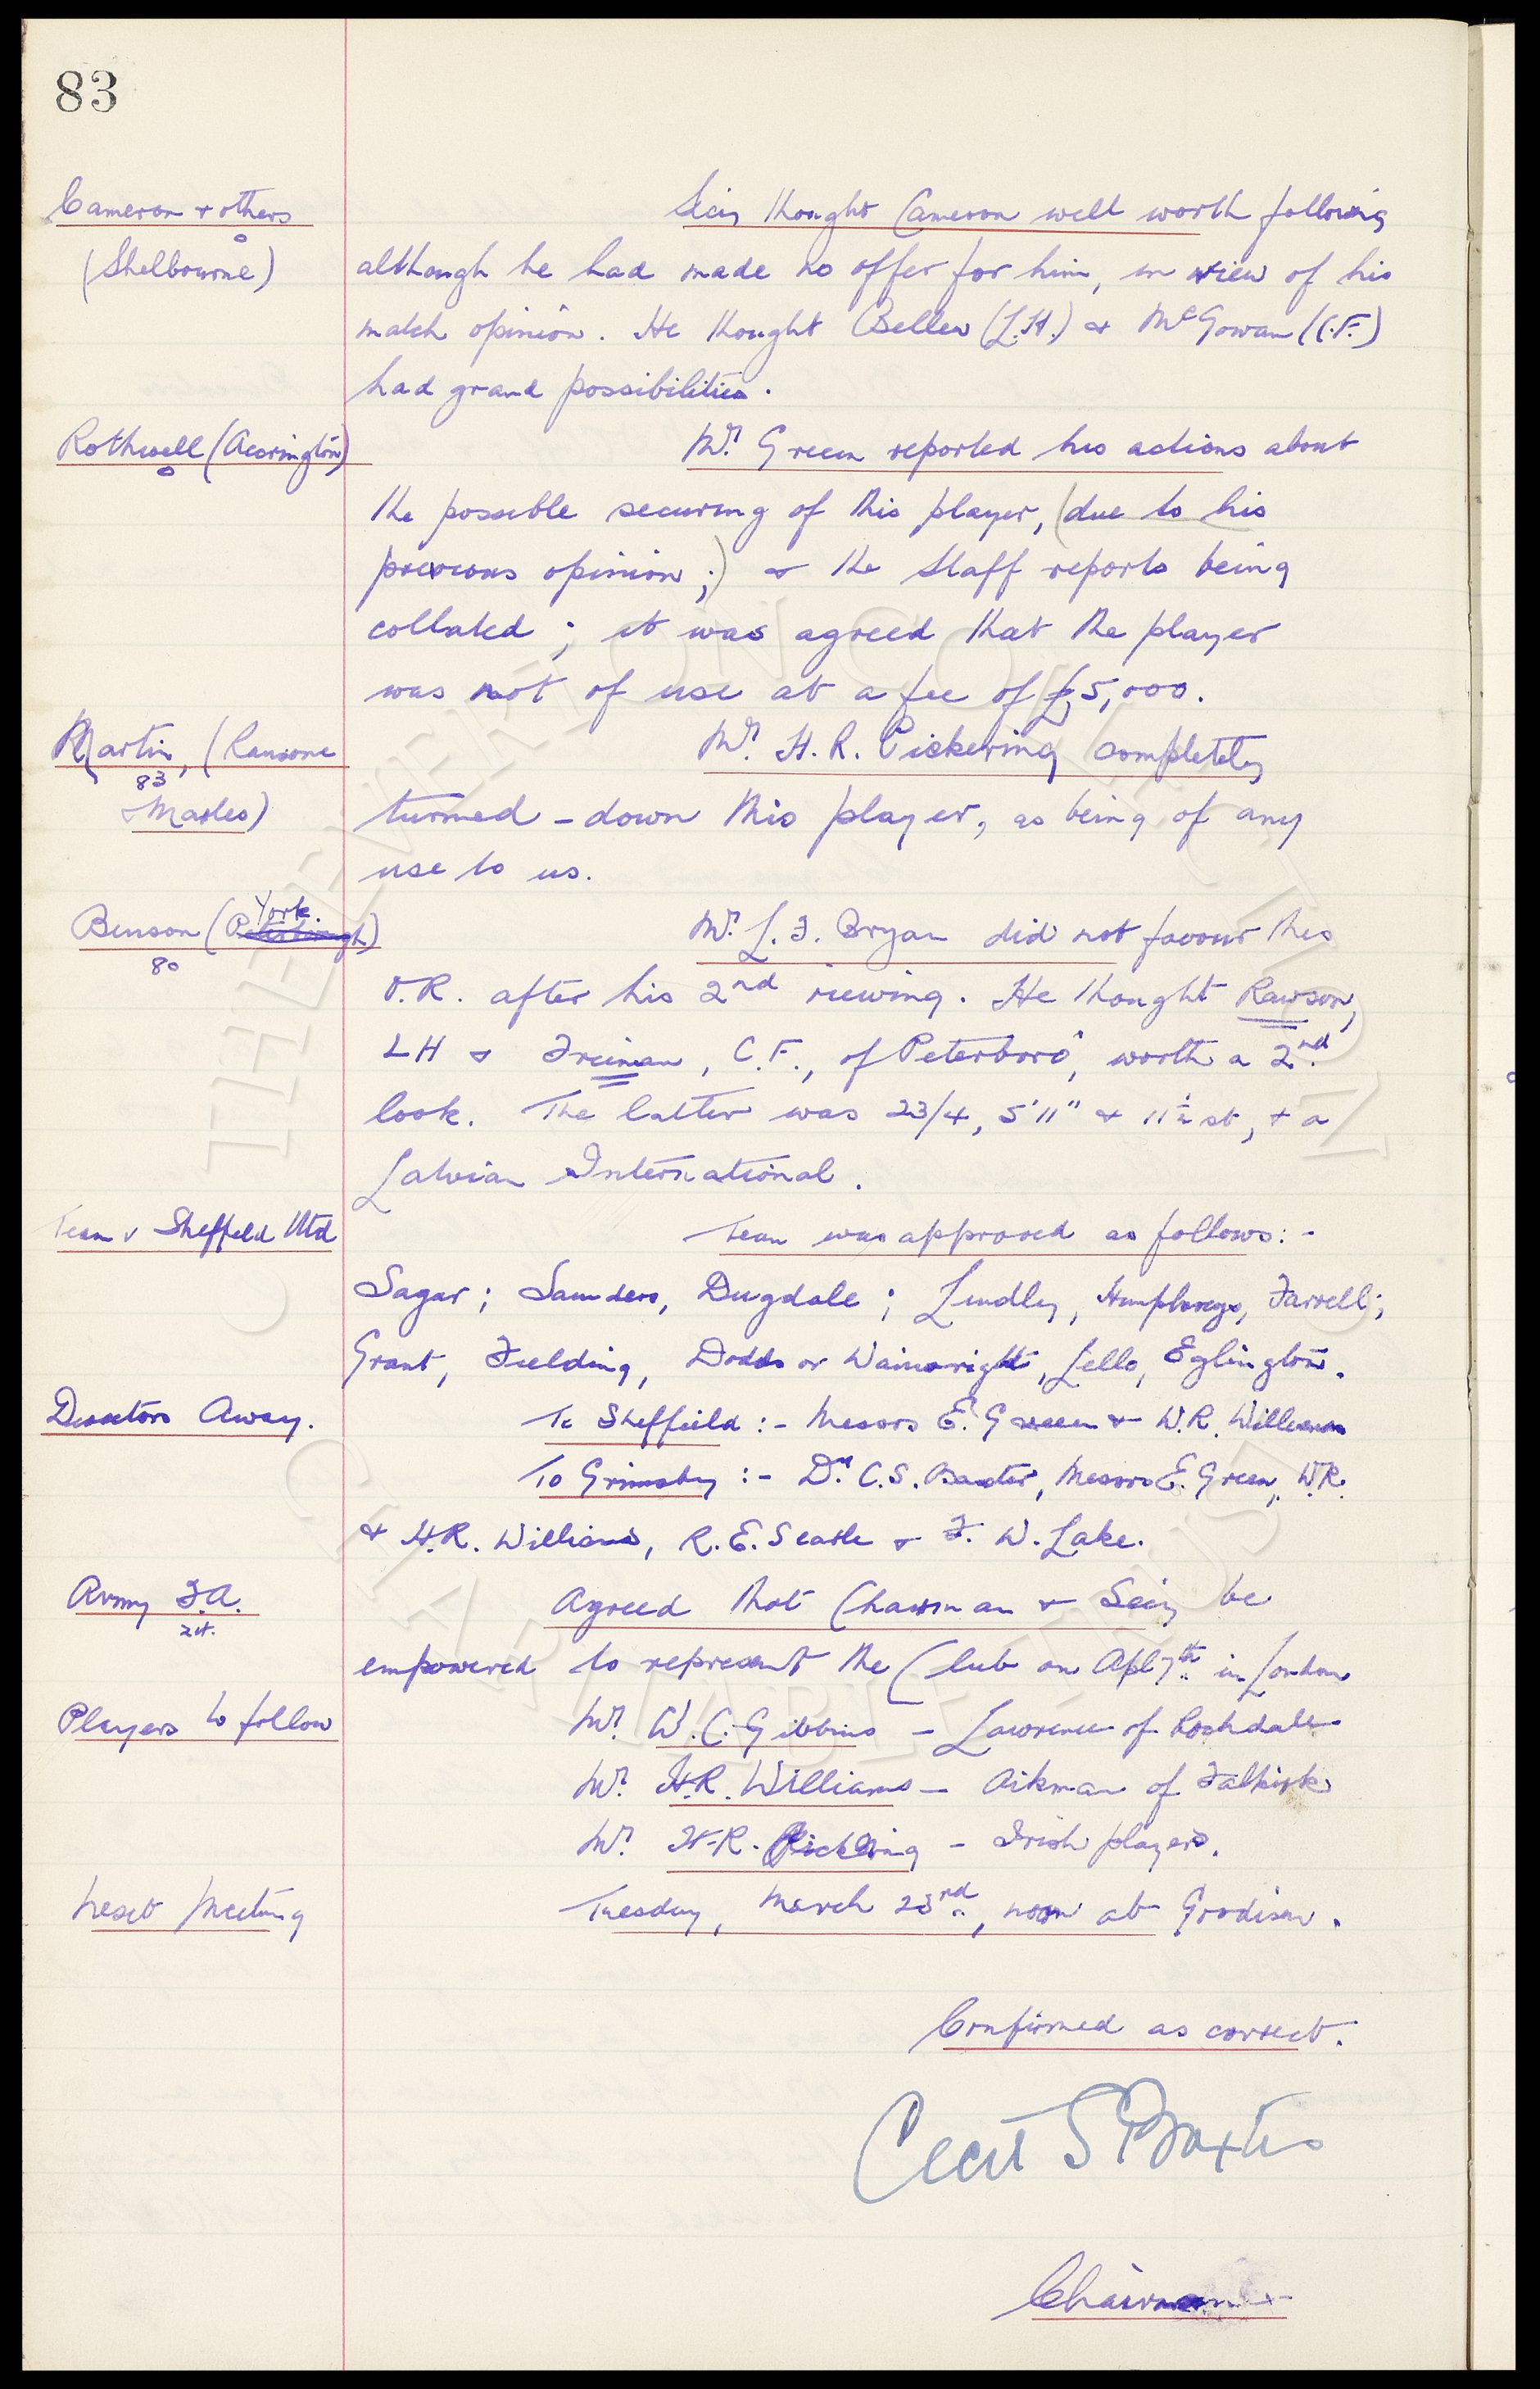 83
Cameron & others
(Shelbourne)
Secy thought Cameron well worth following
although he had made no offer for him, in view of his
match opinion. He thought Bellew (L.H.) & McGowan (C.F.)
had grand possibilities.
Rothwell (Accrington)
Mr. Green reported his actions about
the possible securing of this player, (due to his
previous opinion;) & the staff reports being
collated; it was agreed that the player
was not of use at a fee of £5,000.
Martin, (Ransome
83
& Marles)
Mr. H.R. Pickering completely
turned-down this player, as being of any
use to us.
Benson (York.
80
Mr. L.F. Bryan did not favour this
O.R. after his 2nd viewing. He thought Rawson,
LH & Freiman, C.F., of Peterboro', worth a 2nd
look. The latter was 23/4, 5'11" & 11½st, & a
Latvian International.
Team v Sheffield Utd
Team was approved as follows:-
Sagar; Saunders, Dugdale; Lindley, Humphreys, Farrell;
Grant, Fielding, Dodds or Wainwright, Lello, Eglington.
Directors Away.
To Sheffield:- Messrs E. Green & W.R. Williams
To Grimsby:- Dr. C.S. Baxter, Messrs E. Green, W.R.
& H.R. Williams, R.E. Searle & F.W. Lake.
Army F.A.
Agreed that Chairman & Secy be
empowered to represent the Club on Apl 7th in London
Players to follow
Mr. W.C. Gibbins - Lawrence of Rochdale
Mr. H.R. Williams - Aikman of Falkirk
Mr. H.R. Pickering - Irish players.
Next Meeting
Tuesday, March 23rd, noon at Goodison.
Confirmed as correct.
Cecil S Baxter
Chairman
© THE EVERTON COLLECTION
CHARITABLE TRUST